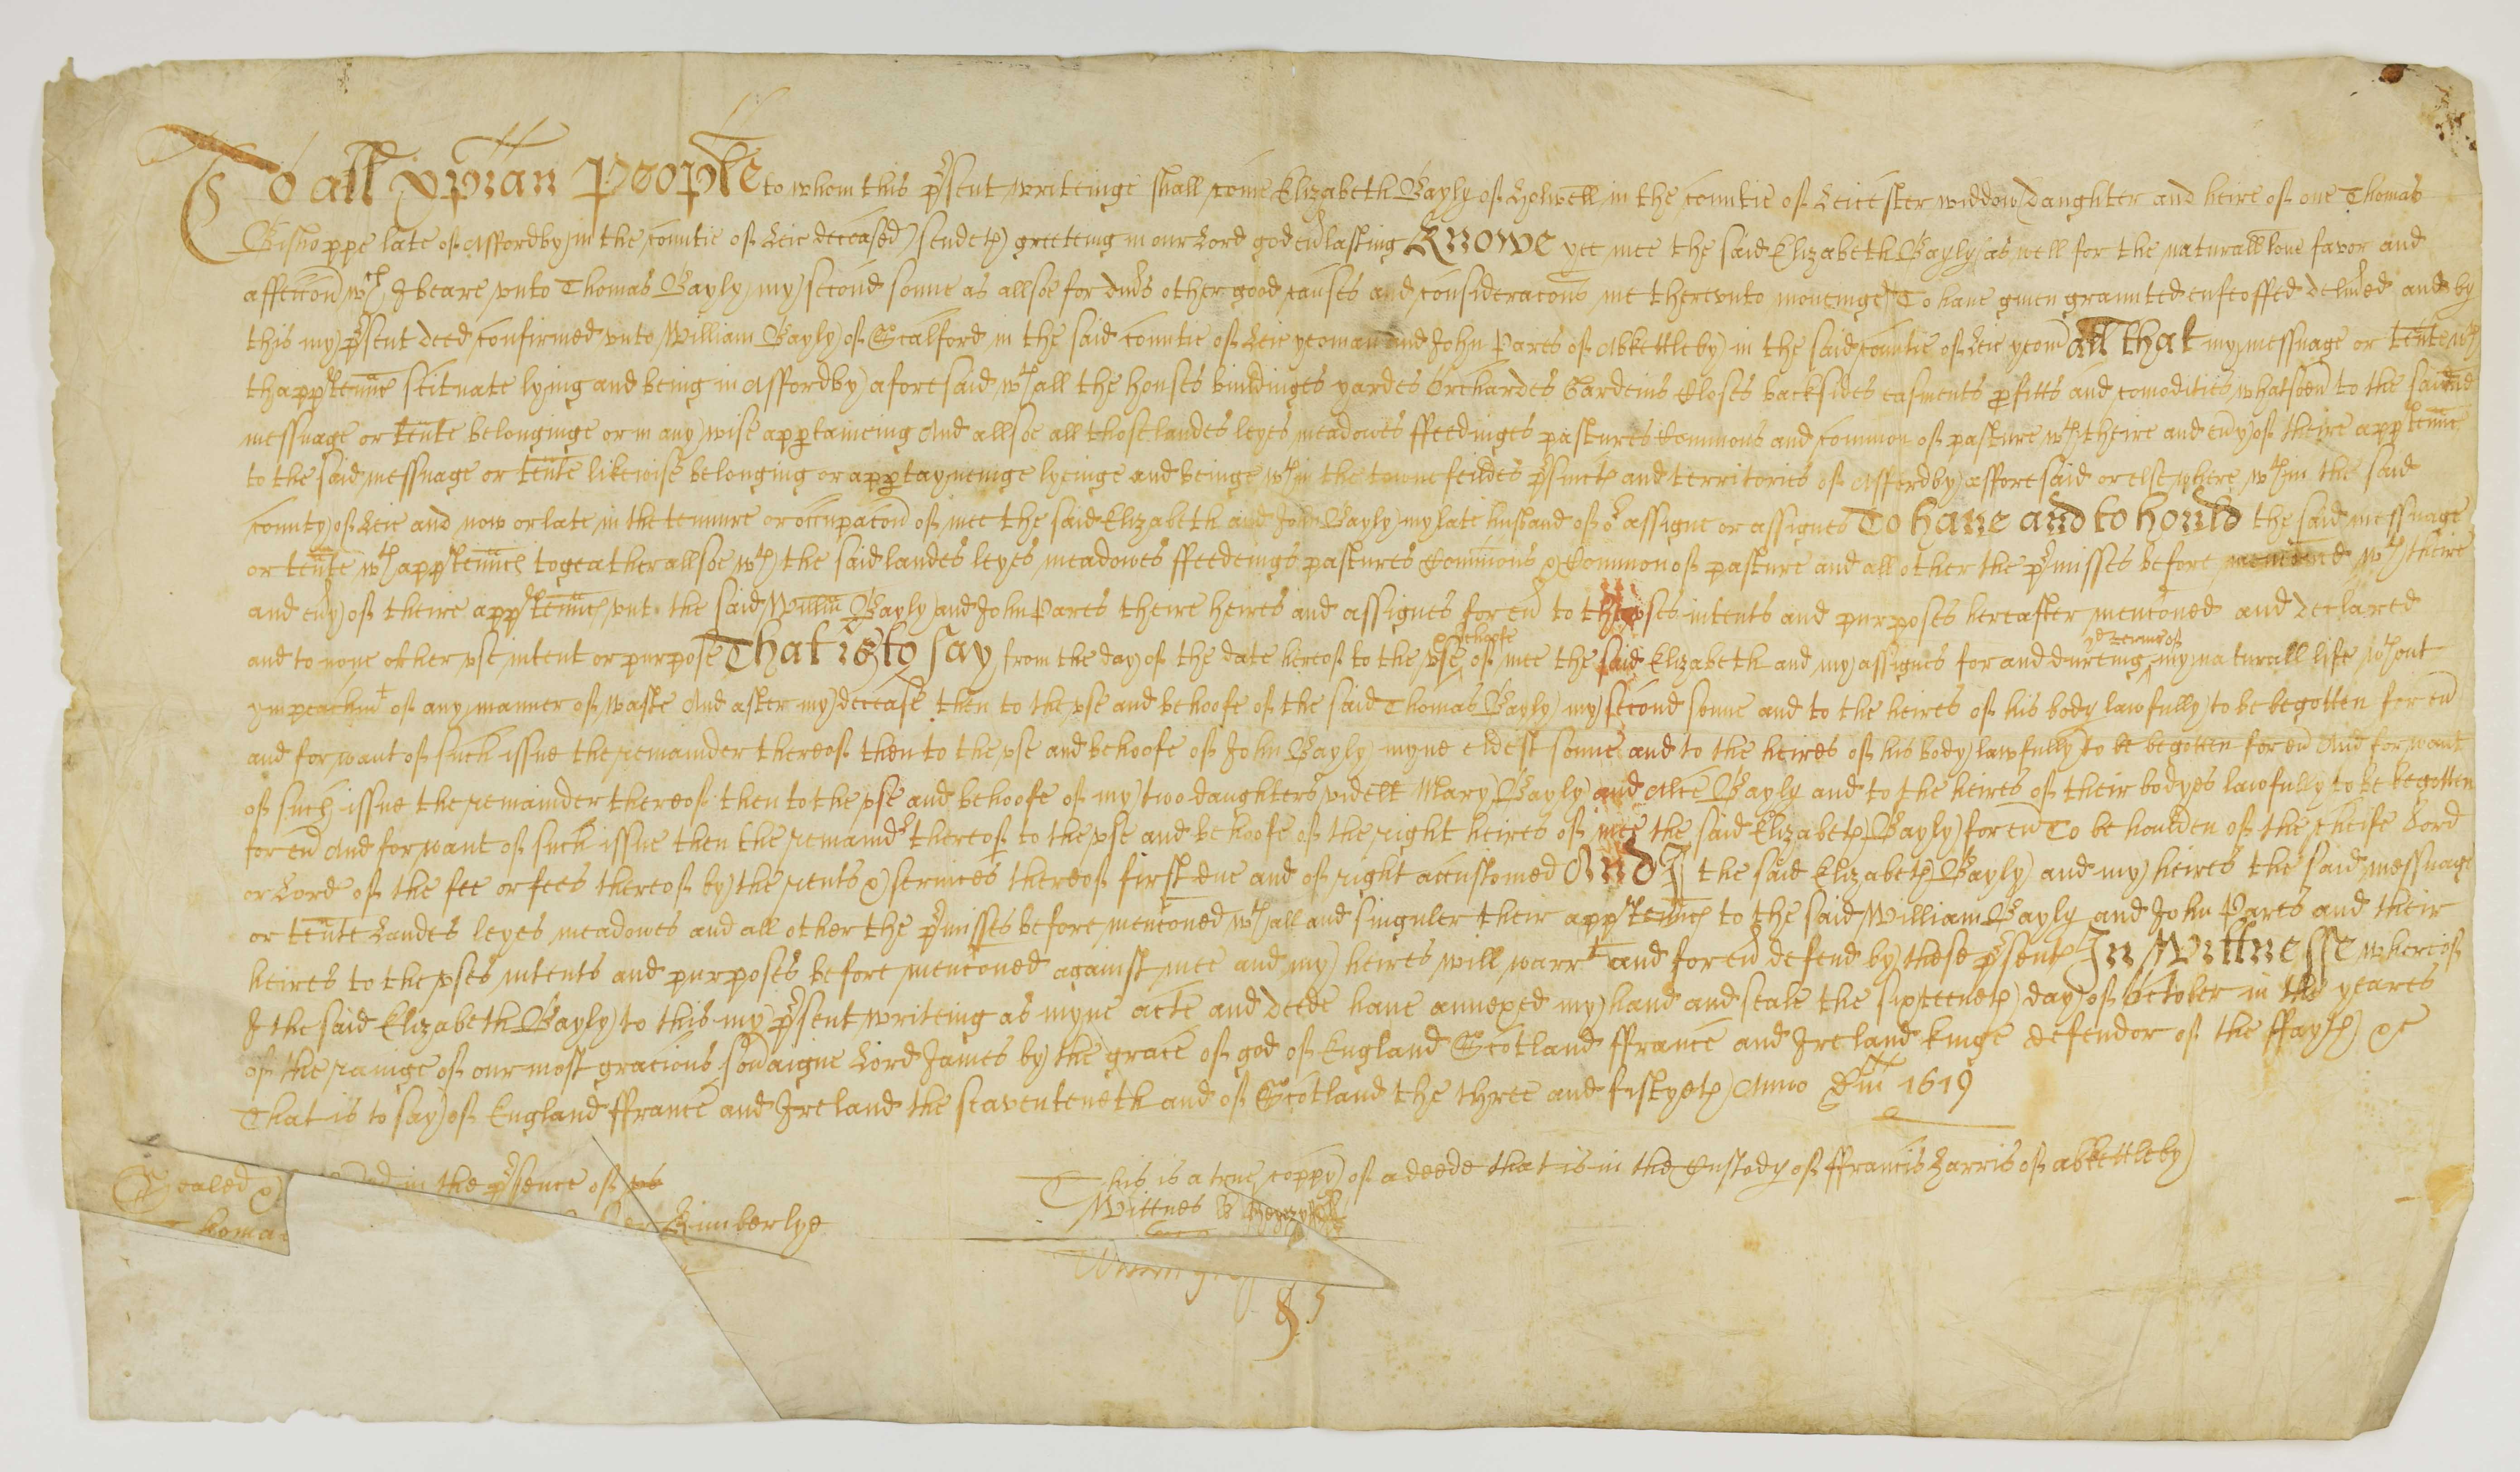 To all xpian People to whom this p̃sent writeinge shall come Elizabeth Bayly of Holwell in the countie of Leicester widdow daughter and heire of one Thomas
Bishoppe late of Affordby in the countie of Leic deceased sendeth greeteing in our Lord god eũlasting Knowe yee mee the said Elizabeth Bayly as well for the naturall loue favor and
affeccon wch I beare vnto Thomas Bayly my second sonne as allsoe for diũs other good causes and consideracons me therevnto moueinge To haue giuen graunted enfeoffed deliũed and by
this my p̃sent deed confirmed vnto William Bayly of Scalford in the said countie of Leic yeoman and John Pares of Abkettleby in the said countie of Leic yeom all That my messuage or tente wth
thapp̃tennc scituate lying and being in Affordby aforesaid wth all the houses buildinges yardes Orchardes Gardeins Closes backsides easments p̃fitts and comodities whatsoeũ to the said
messuage or tente belonginge or in any wise app̃taineing And allsoe all those landes leyes meadowes ffeedinges pastures Commons and common of pasture wth theire and eũy of theire app̃tennc
to the said messuage or tente likewise belonging or app̃tayneinge lyeinge and beinge wthin the towne feildes p̃sincts and territories of Affordby afforesaid or elsewhere wthin the said
county of Leic and now or late in the tennure or occupacon of mee the said Elizabeth and John Bayly my late husband of oʳ assigne or assignes To haue and to hould the said messuage
or tente wth app̃tennces togeather allsoe wth the said landes leyes meadowes ffeedeings pastures Commons & Common of pasture and all other the p̃misses before mencioned wth theire
and eũy of theire app̃tennces vnto the said Willm Bayly and John Pares theire heires and assignes for eũ to the vses intents and purposes hereafter mencõned and declared
and to none other vse intent or purpose That is to say from the day of the date hereof to the vse & behoofe of mee the said Elizabeth and my assignes for and dureing ye terme of my naturall life wthout
ympeachmt of any manner of waste And after my decease then to the vse and behoofe of the said Thomas Bayly my second sonne and to the heires of his body lawfully to be begotten for eũ
and for want of such issue the remainder thereof then to the vse and behoofe of John Bayly myne eldest sonne and to the heires of his body lawfully to be begotten for eũ And for want
of such issue the remainder thereof then to the vse and behoofe of my two daughters videlt Mary Bayly and Alice Bayly and to the heires of their bodyes lawfully to be begotten
for eũ And for want of such issue then the remaindʳ thereof to the vse and behoofe of the right heires of mee the said Elizabeth Bayly for eũ To be houlden of the cheife Lord
or Lords of the fee or fees thereof by the rents & seruices thereof first due and of right accustomed And I the said Elizabeth Bayly and my heires the said messuage
or tente Landes leyes meadowes and all other the p̃misses before mencõned wth all and singuler their app̃tennces to the said William Bayly and John Pares and their
heires to the vses intents and purposes before mencõned against mee and my heires will warrt and for eũ defend by these p̃sents In Wittnesse whereof
I the said Elizabeth Bayly to this my p̃sent writeing as myne acte and deede haue annexed my hand and seale the sixteeneth day of October in the yeares
of the raigne of our most gracious soũaigne Lord James by the grace of god of England Scotland ffrance and Ireland kinge defendor of the ffayth &c
That is to say of England ffrance and Ireland the seaventeneth and of Scotland the three and fiftyeth Anno Dm̃ 1619
Sealed & in the p̃sence of
Thomas Kimberlye
This is a true coppy of a deede that is in the Custody of ffrancis Harris of abkettleby
Wittnes